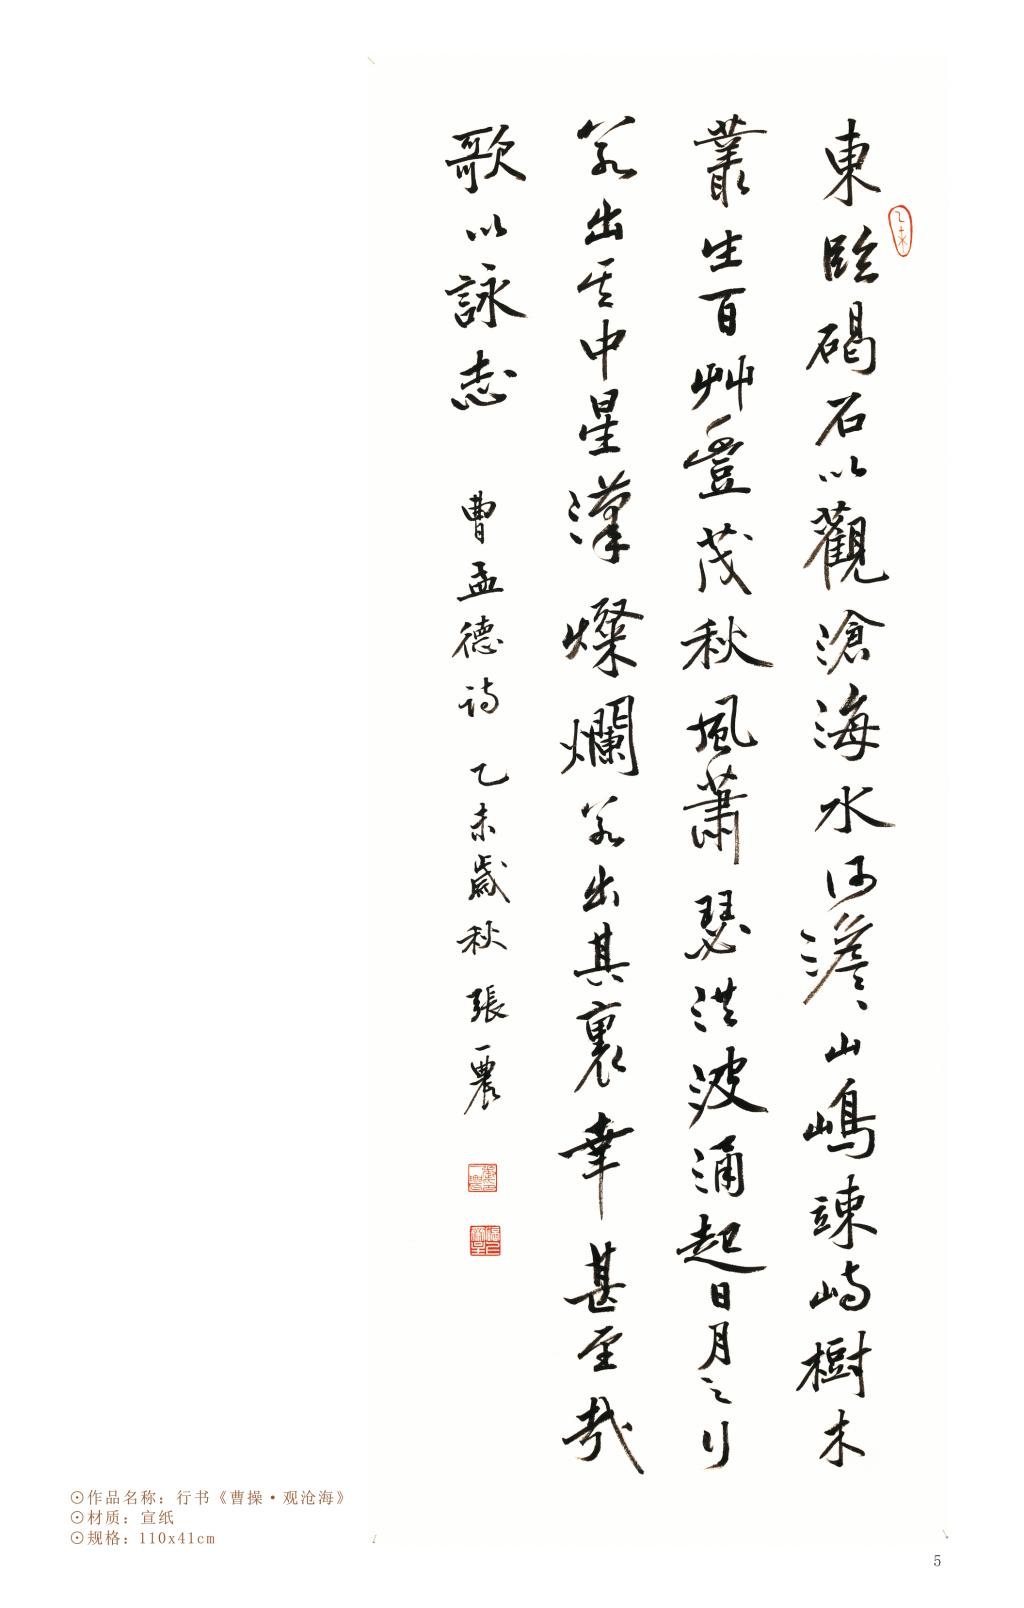 乙未
東臨碣石以觀滄海水何澹〻山嶋竦峙樹木
叢生百艸豐茂秋風蕭瑟洪波涌起日月之行
若出其中星漢燦爛若出其裏幸甚至哉
歌以詠志 曹孟德詩 乙未歲秋 張一農
⊙作品名称：行书《曹操·观沧海》
⊙材质：宣纸
⊙规格：110x41cm
5